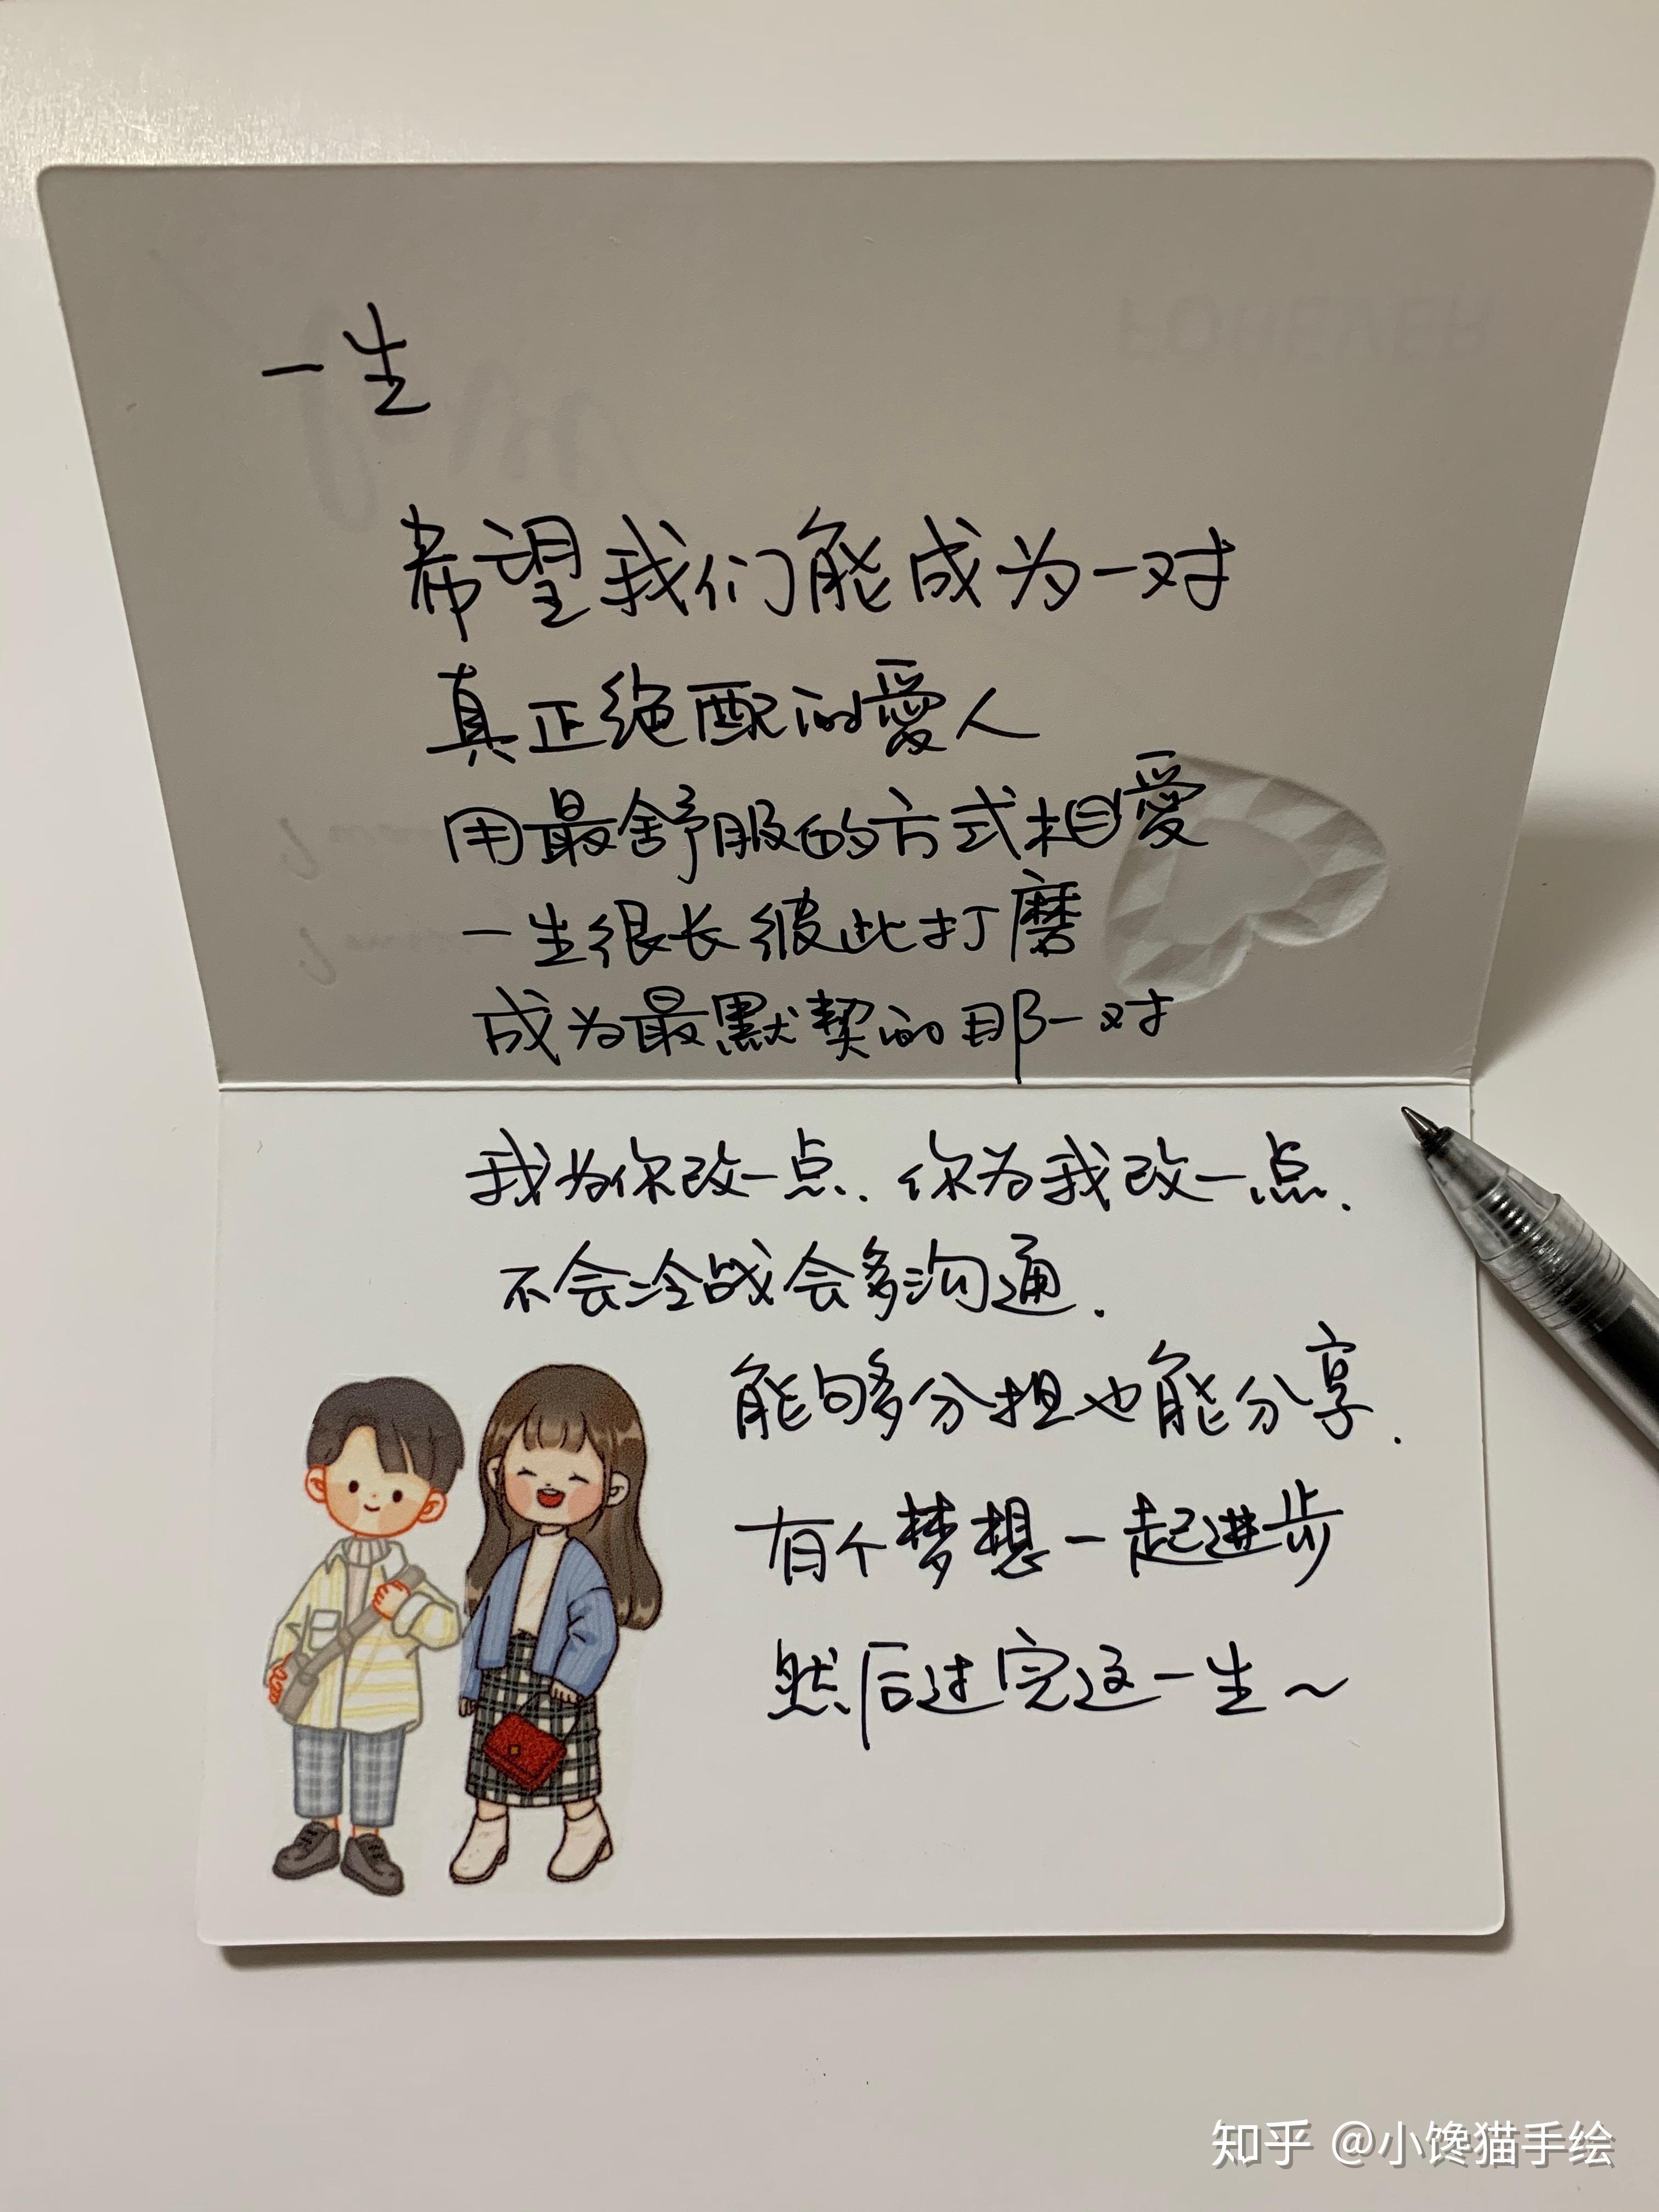 一生
FOREVER
希望我们能成为一对
真正绝配的愛人
用最舒服的方式相愛
一生很长彼此打磨
成为最默契的那一对
我为你改一点、你为我改一点.
不会冷战会多沟通.
能够多分担也能分享.
有个梦想一起进步
然后过完这一生~
知乎 @小馋猫手绘